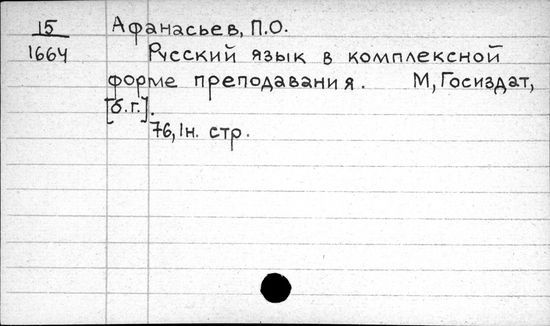 15
1664
Афанасьев, П.О.
Русский язык в комплексной
форме преподавания. М, Госиздат,
[б.г.].
76, 1н. стр.